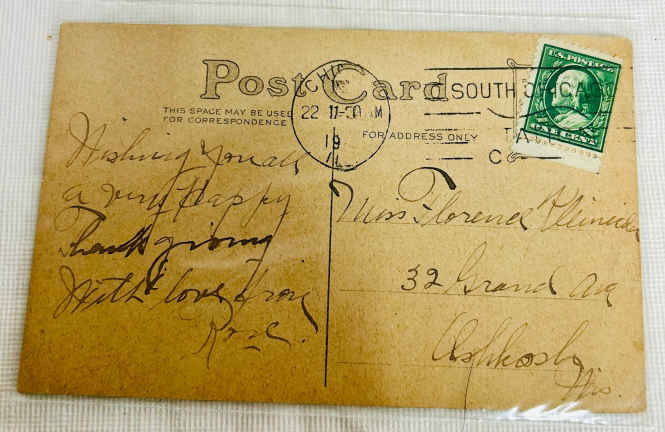 Post Card
THIS SPACE MAY BE USED
FOR CORRESPONDENCE
FOR ADDRESS ONLY
CHI
22 11-30 AM
19
SOUTH CHICAGO
STA
U.S. POSTAGE
ONE CENT
Wishing you all
a very Happy
Thanksgiving
With love from
Rose.
Miss Florence
32 Grand Ave
Oshkosh
Wis.